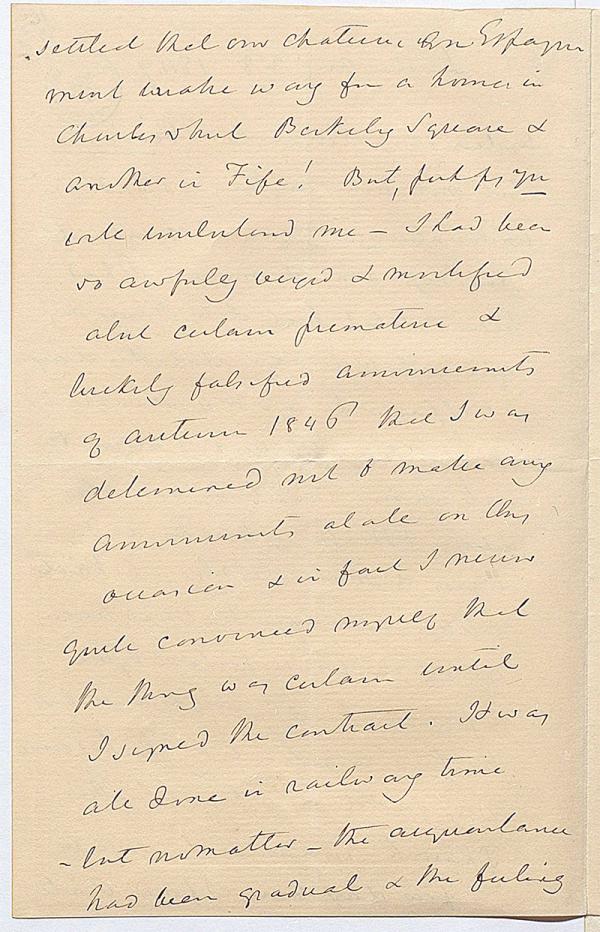 settled that our chateau en Espagne
must make way for a home in
Charles Street Berkeley Square &
another in Fife! But, perhaps you
will understand me – I had been
so awfully vexed & mortified
about certain premature &
luckily falsified announcements
of autumn 1846 that I was
determined not to make any
announcements at all on this
occasion & in fact I never
quite convinced myself that
the thing was certain until
I signed the contract. It was
all done in railway time
– but no matter – the acquaintance
had been gradual & the feeling